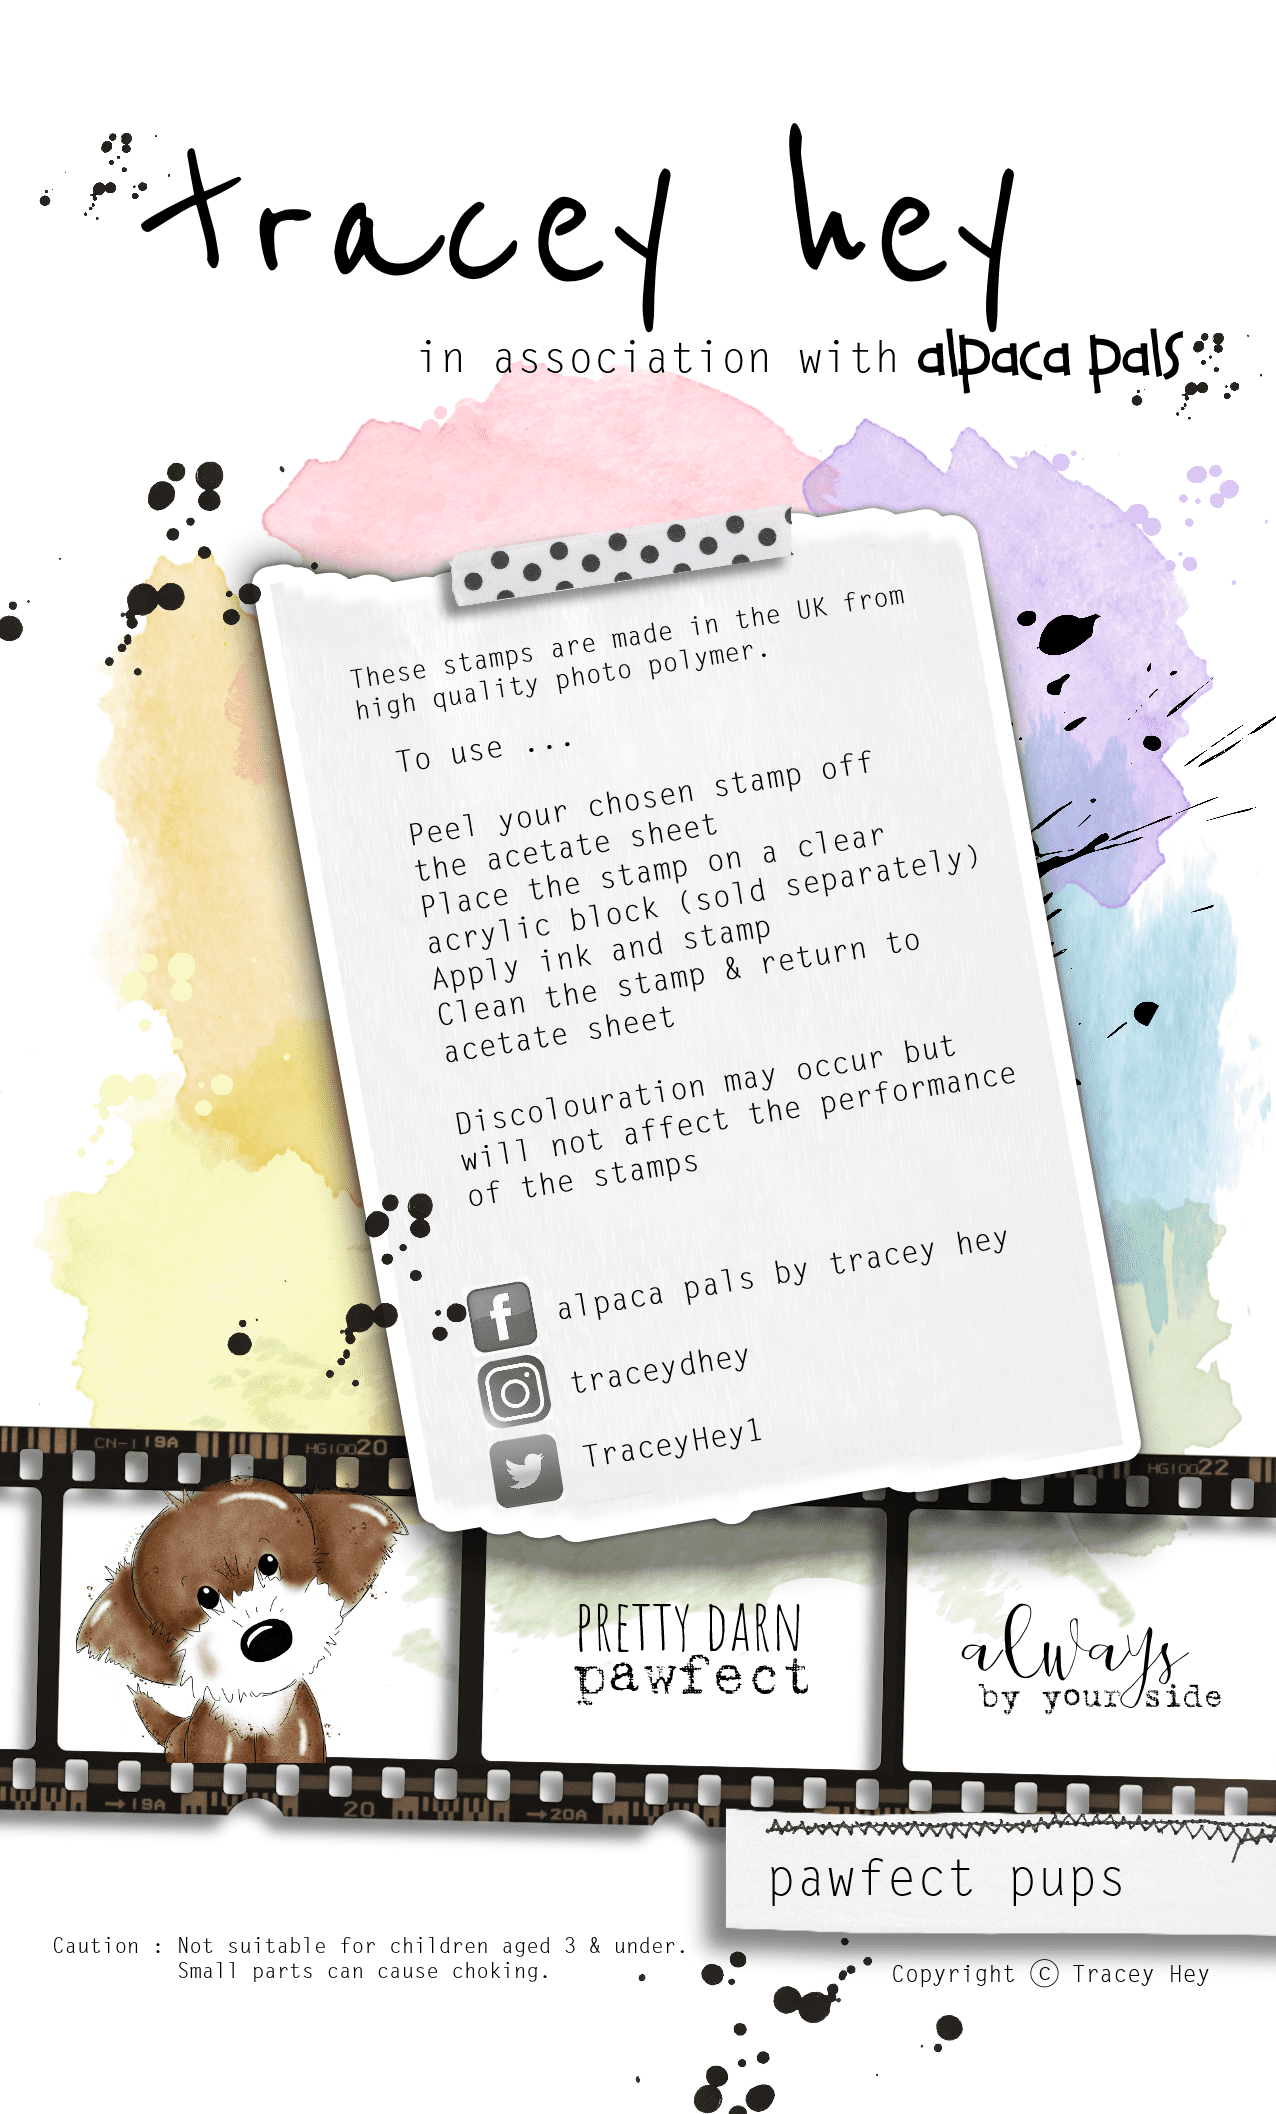 tracey hey
in association with alpaca pals
These stamps are made in the UK from
high quality photo polymer.
To use ...
Peel your chosen stamp off
the acetate sheet
Place the stamp on a clear
acrylic block (sold separately)
Apply ink and stamp
Clean the stamp & return to
acetate sheet
Discolouration may occur but
will not affect the performance
of the stamps
alpaca pals by tracey hey
traceydhey
TraceyHey1
CN-1 19A
HG10020
HG10022
PRETTY DARN
pawfect
always
by your side
→19A
20
→20A
pawfect pups
Caution : Not suitable for children aged 3 & under.
Small parts can cause choking.
Copyright © Tracey Hey